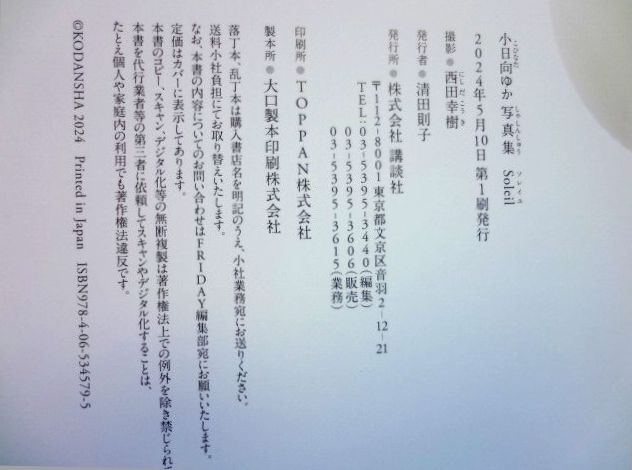 小日向ゆか 写真集 Soleil
こひなた しゃしんしゅう ソレイユ
2024年5月10日 第1刷発行
撮影●西田幸樹
にしだこうき
発行者●清田則子
発行所●株式会社 講談社
〒112-8001 東京都文京区音羽2-12-21
TEL:03-5395-3440(編集)
03-5395-3606(販売)
03-5395-3615(業務)
印刷所●TOPPAN株式会社
製本所●大口製本印刷株式会社
落丁本、乱丁本は購入書店名を明記のうえ、小社業務宛にお送りください。
送料小社負担にてお取り替えいたします。
なお、本書の内容についてのお問い合わせはFRIDAY編集部宛にお願いいたします。
定価はカバーに表示してあります。
本書のコピー、スキャン、デジタル化等の無断複製は著作権法上での例外を除き禁じられて
本書を代行業者等の第三者に依頼してスキャンやデジタル化することは、
たとえ個人や家庭内の利用でも著作権法違反です。
©KODANSHA 2024 Printed in Japan ISBN978-4-06-534579-5